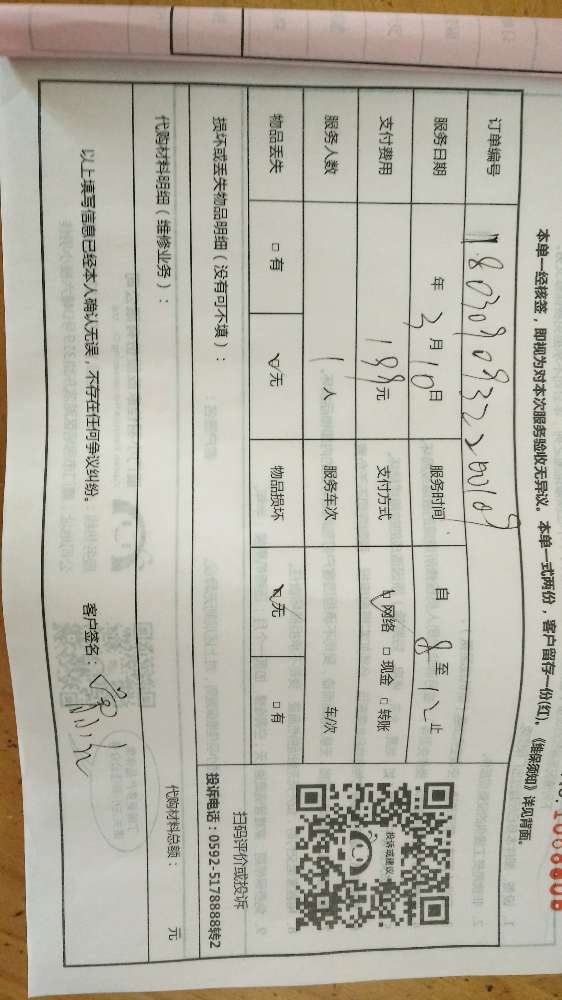 本单一经核签，即视为对本次服务验收无异议。本单一式两份，客户留存一份(红)。《维保须知》详见背面。
订单编号
服务日期 年 3 月 10 日 服务时间： 自 8 至 12 止
支付费用 199 元 支付方式 网络 □ 现金 □ 转账
服务人数 1 人 服务车次 车/次
物品丢失 □ 有 □ 无 物品损坏 □ 无 □ 有
投诉或建议
扫码评价或投诉
投诉电话：0592-5178888转2
损坏或丢失物品明细（没有可不填）：
代购材料明细（维修业务）：
代购材料总额： 元
以上填写信息已经本人确认无误，不存在任何争议纠纷。
客户签名：